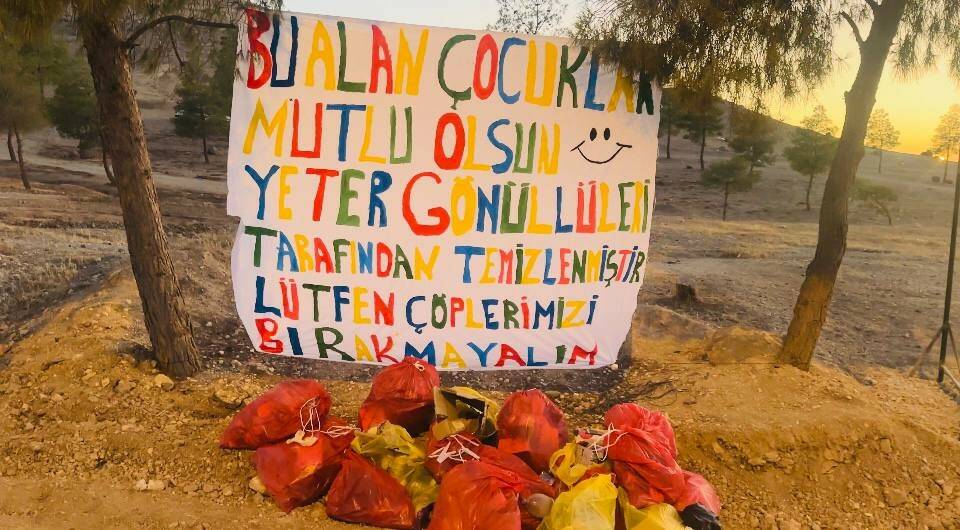 BU ALAN ÇOCUKLAR
MUTLU OLSUN
YETER GÖNÜLLÜLERİ
TARAFINDAN TEMİZLENMİŞTİR
LÜTFEN ÇÖPLERİMİZİ
BIRAKMAYALIM